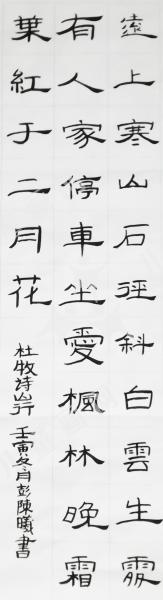 遠上寒山石徑斜白雲生處
有人家停車坐愛楓林晚霜
葉紅于二月花
杜牧诗山行 壬寅冬月彭陳曦書